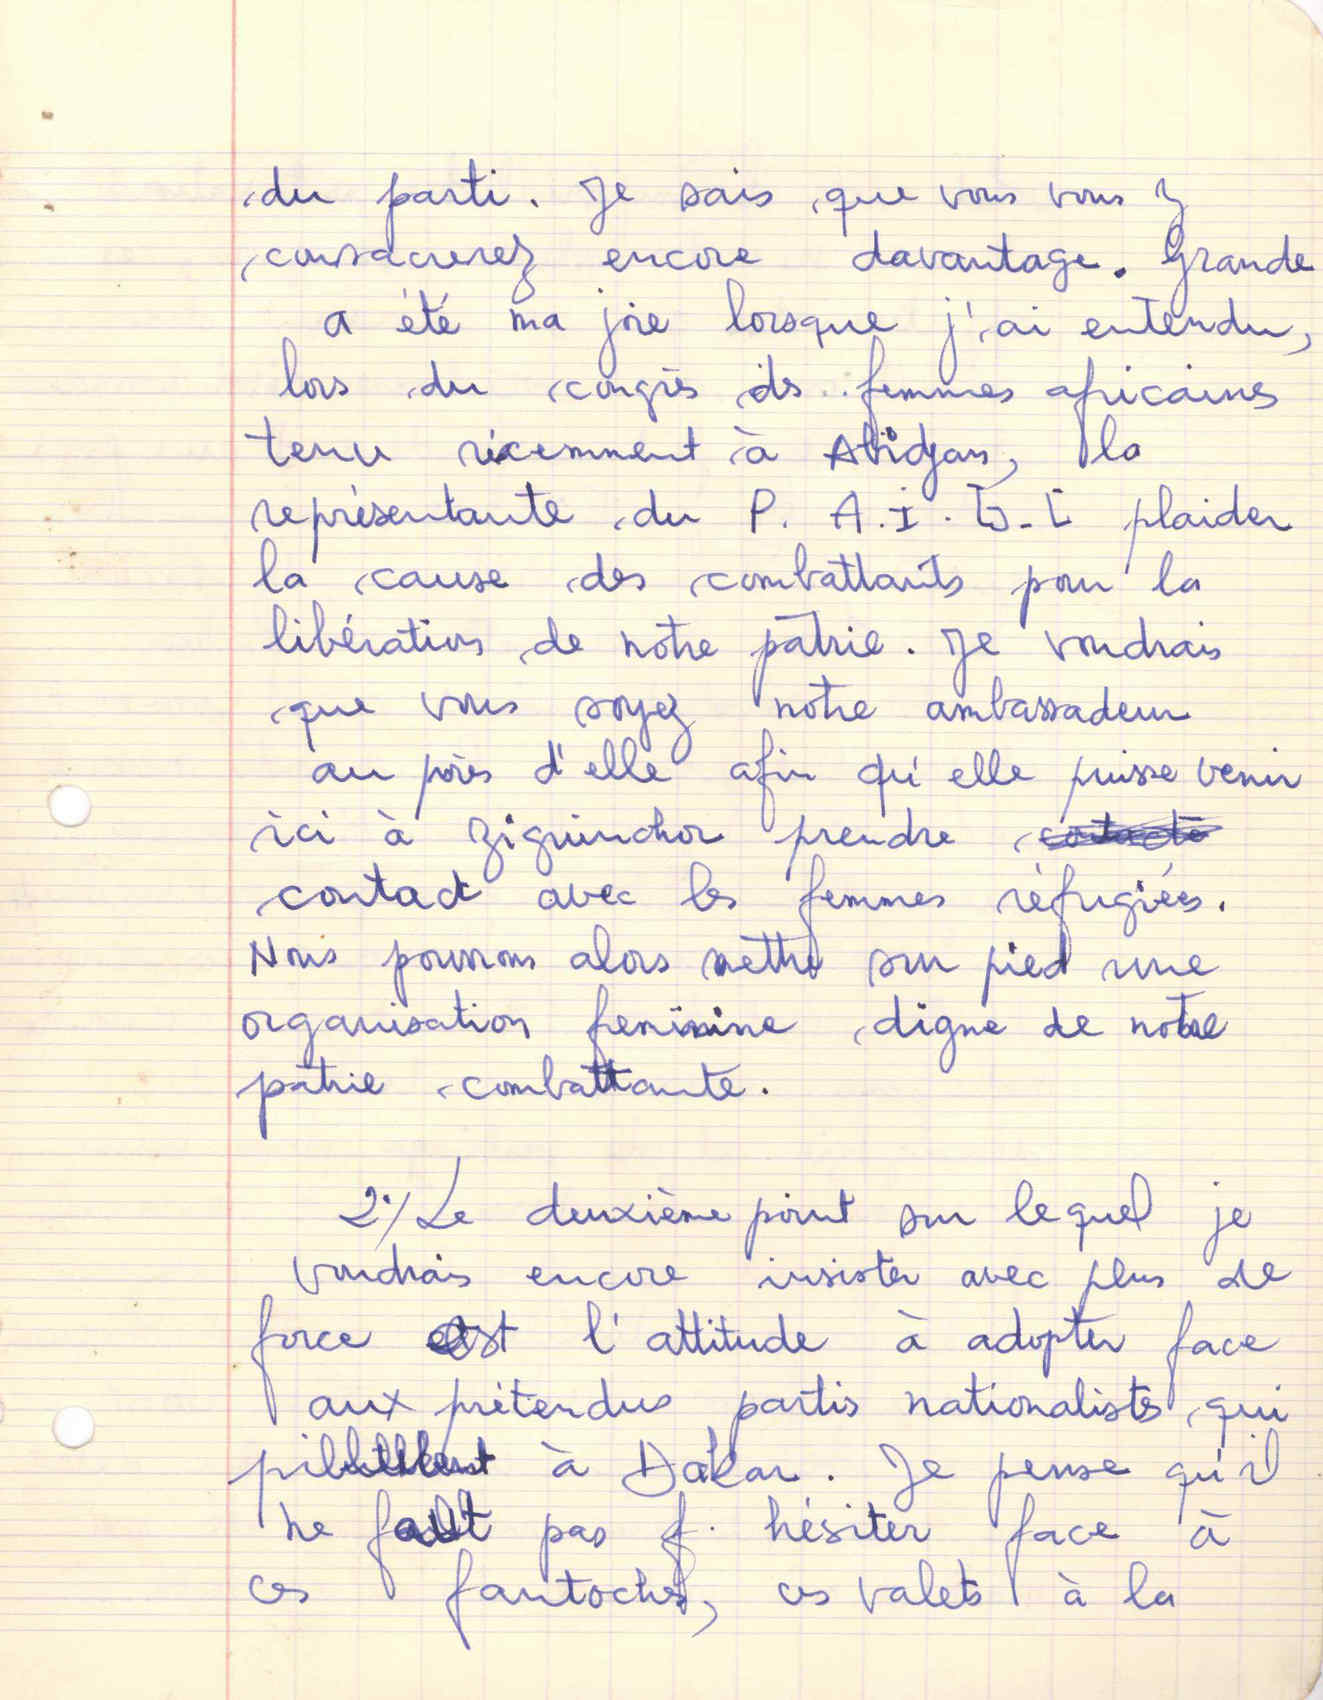 du parti. Je sais que vous vous y
consacrerez encore davantage. Grande
a été ma joie lorsque j'ai entendu,
lors du congrès des femmes africaines
tenu récemment à Abidjan, la
représentante du P. A. I. G. C plaider
la cause des combattants pour la
libération de notre patrie. Je voudrais
que vous soyez notre ambassadeur
au près d'elle afin qu'elle puisse venir
ici à Ziguinchor prendre contacte
contact avec les femmes réfugiées.
Nous pourrons alors mettre sur pied une
organisation feminine digne de notre
patrie combattante.
2°/ Le deuxième point sur lequel je
voudrais encore insister avec plus de
force est l'attitude à adopter face
aux prétendus partis nationalistes qui
à Dakar. Je pense qu'il
ne faut pas hésiter face à
ces fantoches, ces valets à la